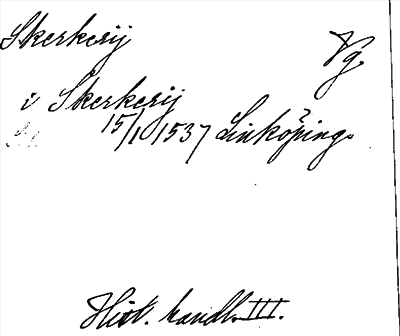 Skerkerij Vg.
i Skerkerij
15/1 1537 Linköping.
Hist. handl. III.